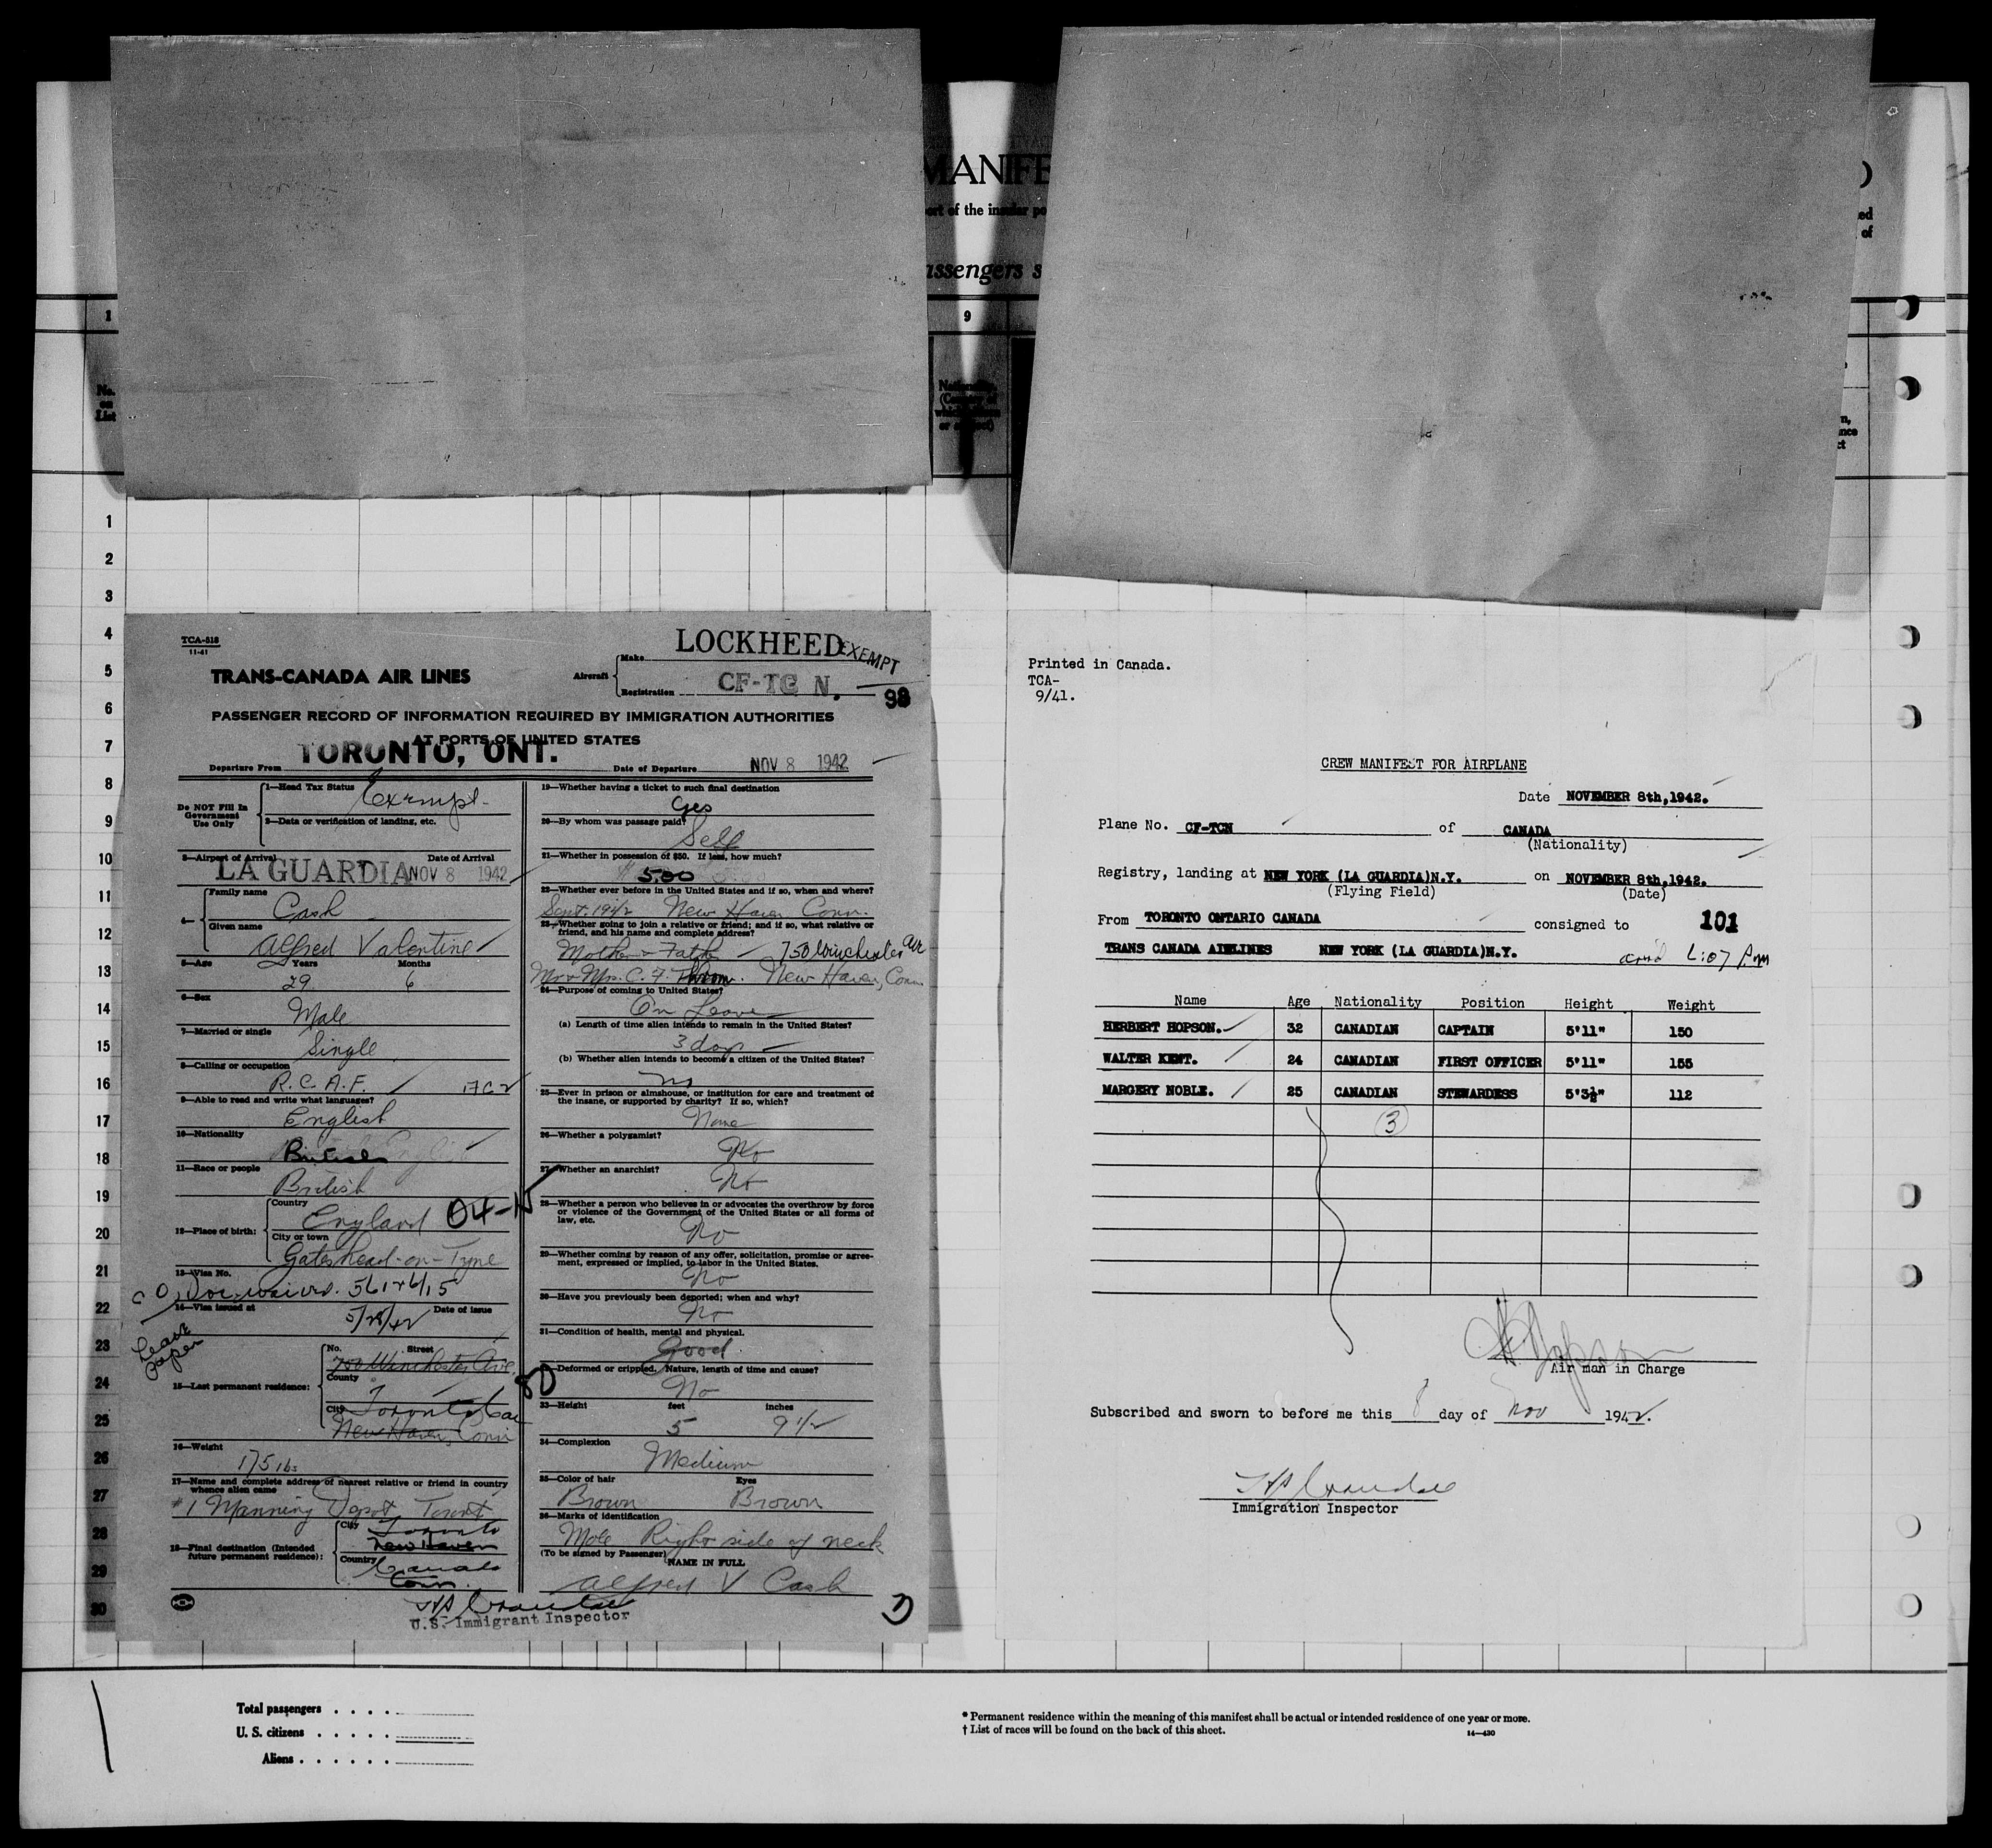 MANIFE
ort of the insular po
assengers s
ed
of
1
9
No.
on
List
1
2
3
4
5
6
7
8
9
10
11
12
13
14
15
16
17
18
19
20
21
22
23
24
25
26
27
28
29
30
TCA-518
11-41
TRANS-CANADA AIR LINES
Aircraft
Make LOCKHEED
EXEMPT
Registration CF-TC N.
PASSENGER RECORD OF INFORMATION REQUIRED BY IMMIGRATION AUTHORITIES
AT PORTS OF UNITED STATES
Departure From TORONTO, ONT.
Date of Departure NOV 8 1942
Do NOT Fill In
Government
Use Only
1—Head Tax Status Exempt
2—Data or verification of landing, etc.
3—Airport of Arrival Date of Arrival
LA GUARDIA NOV 8 1942
4—
Family name
Cash
Given name
Alfred Valentine
5—Age Years Months
29 6
6—Sex
Male
7—Married or single
Single
8—Calling or occupation
R.C.A.F.
9—Able to read and write what languages?
English
10—Nationality
British
11—Race or people
British
12—Place of birth:
Country
England
City or town
Gateshead-on-Tyne
13—Visa No.
14—Visa issued at Date of issue
Leave
paper
15—Last permanent residence:
No. Street
750 Winchester Ave
County
City Toronto
New Haven, Conn
16—Weight
175 lbs
17—Name and complete address of nearest relative or friend in country
whence alien came
#1 Manning Depot Toront
18—Final destination (Intended
future permanent residence):
City Toronto
New Haven
Country Canada
Conn.
19—Whether having a ticket to such final destination
Yes
20—By whom was passage paid?
Self
21—Whether in possession of $50. If less, how much?
22—Whether ever before in the United States and if so, when and where?
Sept. 1942 New Haven Conn.
23—Whether going to join a relative or friend; and if so, what relative or
friend, and his name and complete address?
Mother & Father 750 Winchester Ave
Mr & Mrs. C. F. New Haven, Conn
24—Purpose of coming to United States?
On Leave
(a) Length of time alien intends to remain in the United States?
3 days
(b) Whether alien intends to become a citizen of the United States?
no
25—Ever in prison or almshouse, or institution for care and treatment of
the insane, or supported by charity? If so, which?
None
26—Whether a polygamist?
No
27—Whether an anarchist?
No
28—Whether a person who believes in or advocates the overthrow by force
or violence of the Government of the United States or all forms of
law, etc.
No
29—Whether coming by reason of any offer, solicitation, promise or agree-
ment, expressed or implied, to labor in the United States.
No
30—Have you previously been deported; when and why?
No
31—Condition of health, mental and physical.
Good
32—Deformed or crippled. Nature, length of time and cause?
No
33—Height feet inches
5 9 1/2
34—Complexion
Medium
35—Color of hair Eyes
Brown Brown
36—Marks of identification
Mole Right side of neck
(To be signed by Passenger) NAME IN FULL
Alfred V Cash
U.S. Immigrant Inspector
Printed in Canada.
TCA-
9/41.
CREW MANIFEST FOR AIRPLANE
Date NOVEMBER 8th,1942.
Plane No. CF-TCN of CANADA
(Nationality)
Registry, landing at NEW YORK (LA GUARDIA)N.Y. on NOVEMBER 8th,1942.
(Flying Field) (Date)
From TORONTO ONTARIO CANADA consigned to 101
TRANS CANADA AIRLINES NEW YORK (LA GUARDIA)N.Y.
Name Age Nationality Position Height Weight
HERBERT HOPSON. 32 CANADIAN CAPTAIN 5'11" 150
WALTER KENT. 24 CANADIAN FIRST OFFICER 5'11" 155
MARGERY NOBLE. 25 CANADIAN STEWARDESS 5'3½" 112
3
H Hopson
Air man in Charge
Subscribed and sworn to before me this 8 day of Nov 1942.
Immigration Inspector
Total passengers . . . .
U. S. citizens . . . . .
Aliens . . . . . .
* Permanent residence within the meaning of this manifest shall be actual or intended residence of one year or more.
† List of races will be found on the back of this sheet.
14—430